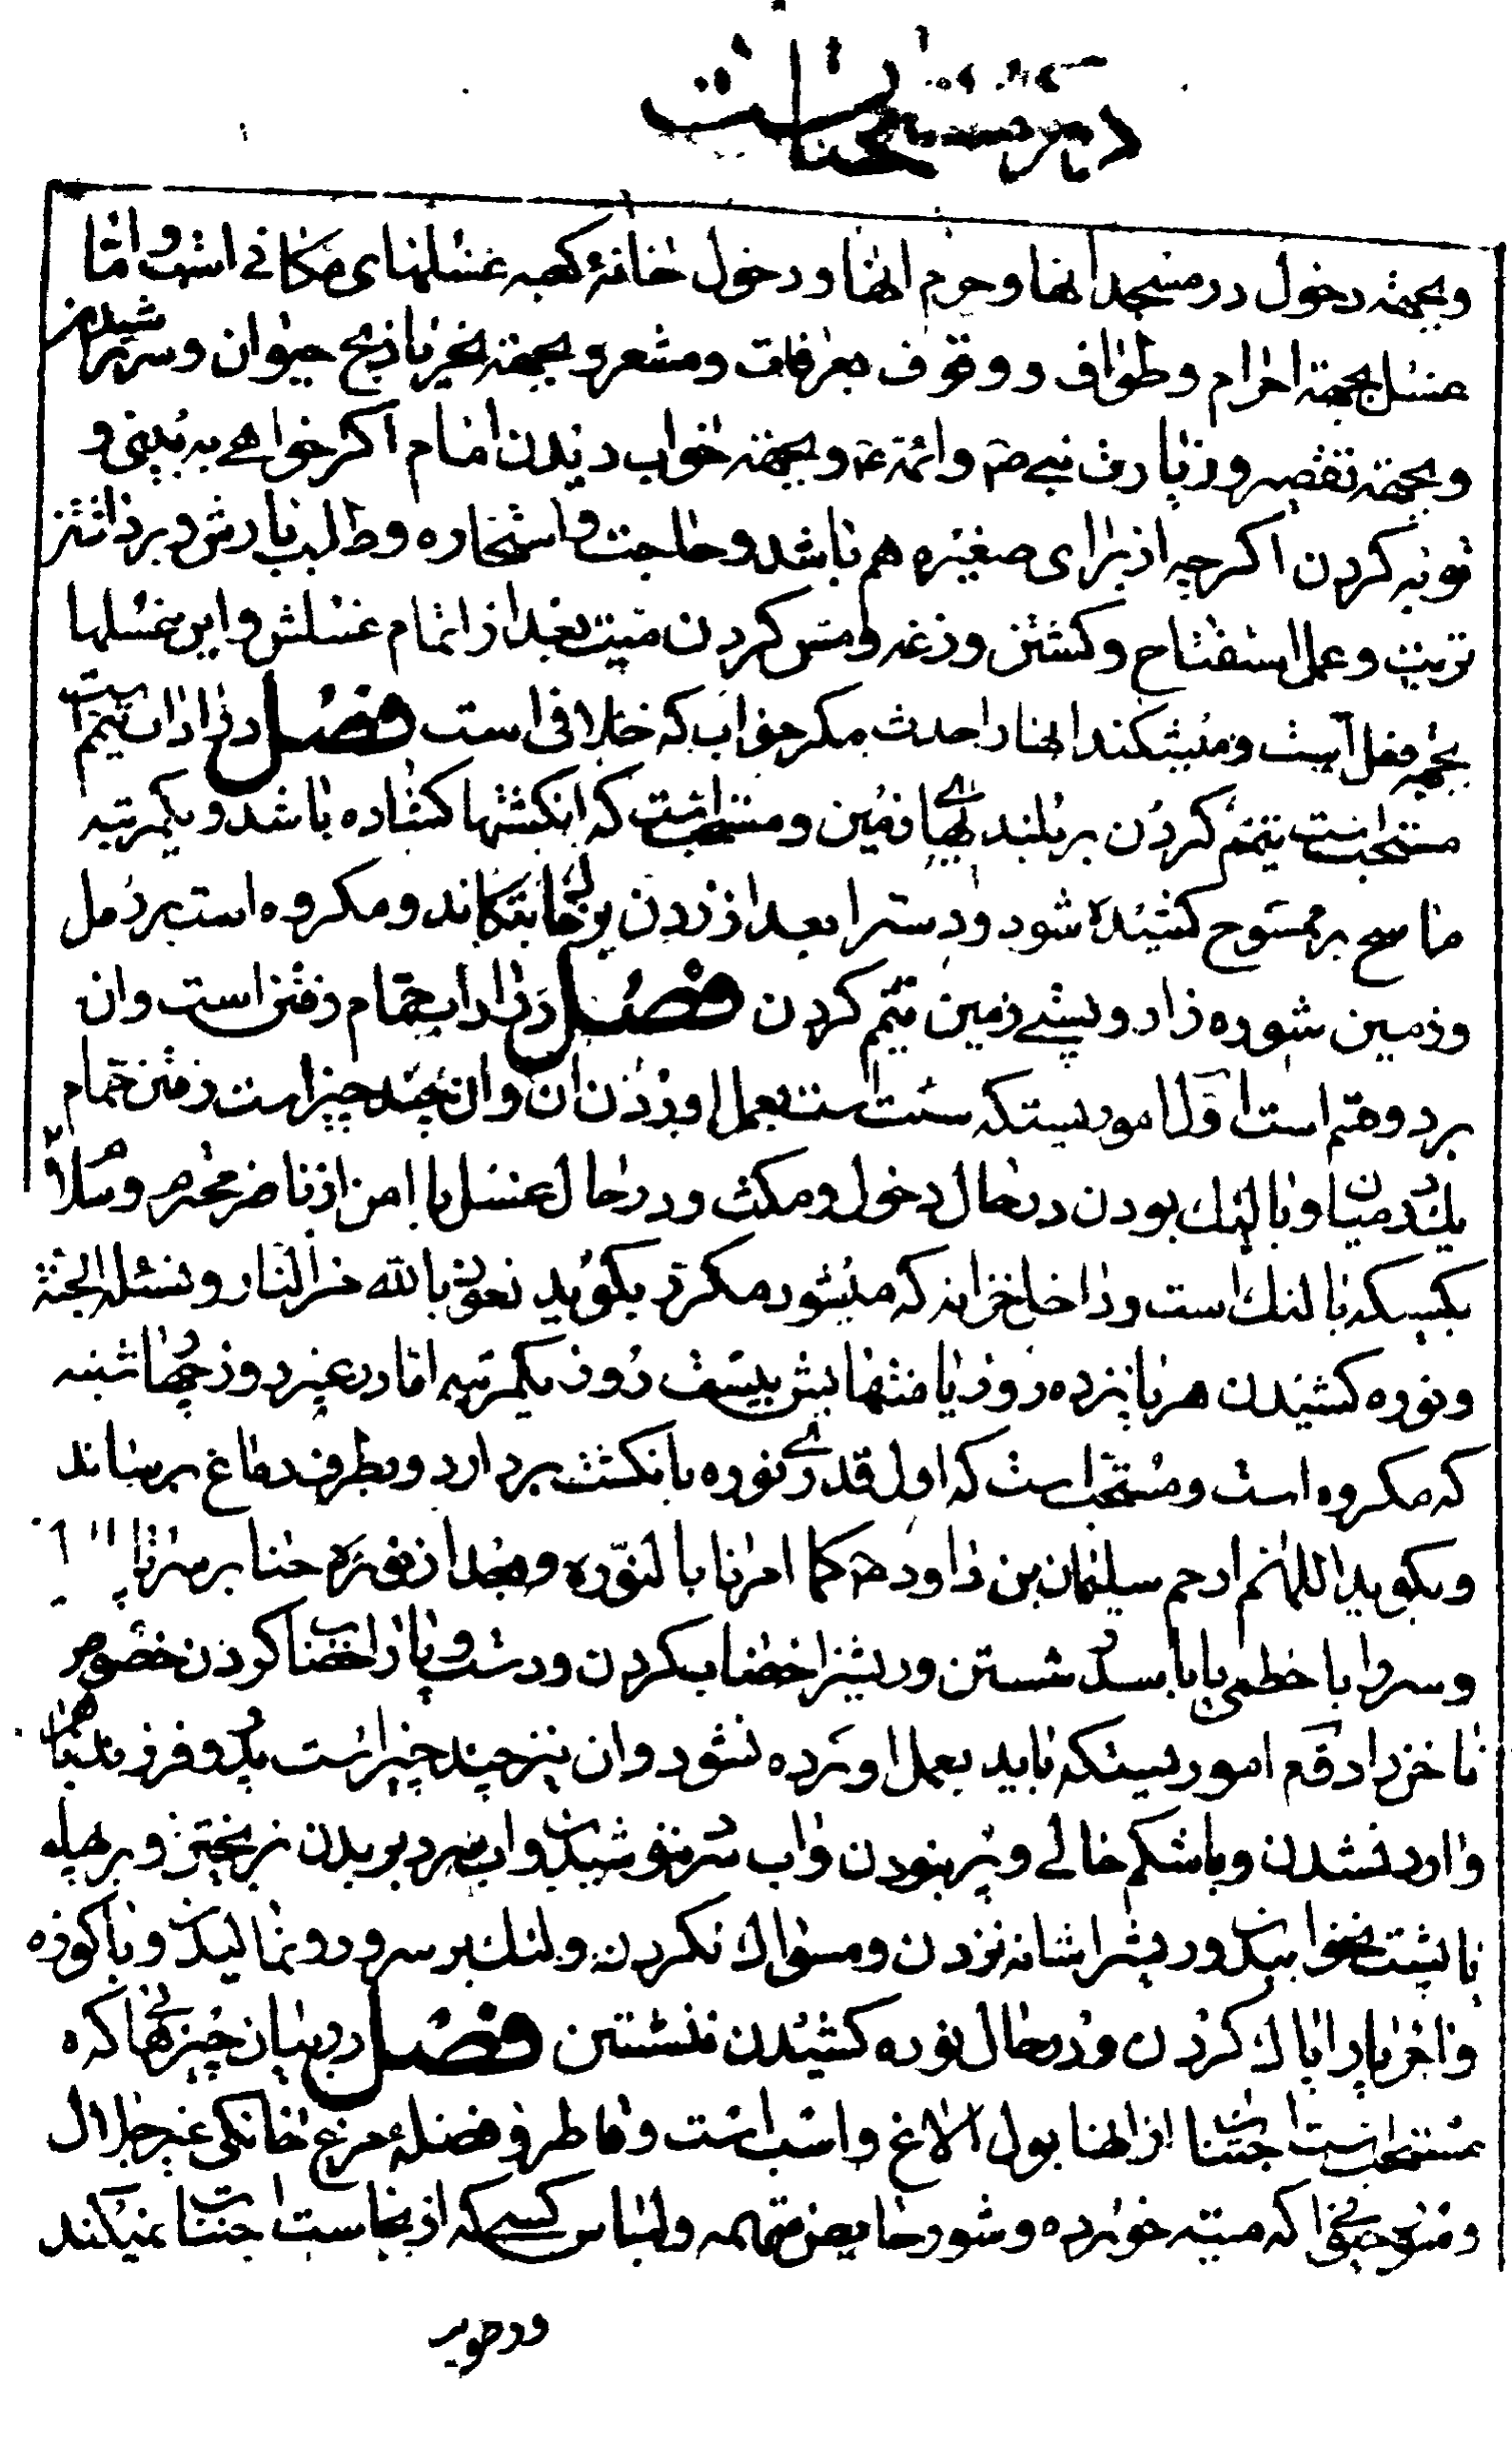 وبجهة دخول در مسجد انها و حرم انها و دخول خانهٔ کعبه غسلهای مکانی است و اما
غسل بجهة احرام و طواف و وقوف بعرفات و مشعر و بجهة نحر یا ذبح حیوان و سر تراشیدن
و بجهة تقصیر و زیارت نبی ص و ائمه ع و بجهة خواب دیدن امام اکر خواهی به بینی و
توبه کردن اکرچه از برای صغیره هم باشد و حاجت و استخاره و طلب بارش و برداشتن
تربت و عمل استفتاح و کشتن وزغه و مس کردن میت بعد از اتمام غسلش و این غسلها
بجهة فعل است و میشکند انها را حدث مکر خواب که خلافی است فصل در اداب تیمم است
مستحب است تیمم کردن بر بلندیهای زمین و مستحب است که انکشتها کشاده باشد و یکمرتبه
ماسح بر ممسوح کشیده شود و دست را بعد از زدن بر خاک بتکاند و مکروه است بر رمل
و زمین شوره زار و پستی زمین تیمم کردن فصل در اداب حمام رفتن است و ان
بر دو قسم است اول اموریستکه سنت است بعمل اوردن ان و ان چند چیز است رفتن حمام
یکروز در میان و با لنک بودن در حال دخول و مکث و در حال غسل با امن از ناظر محترم و سلام
بکسیکه با لنک است و داخل خزانه که میشود مکرر بکوید نعوذ بالله من النار و نسئله الجنة
و نوره کشیدن هر پانزده روز یا منتهایش بیست روز یکمرتبه اما در غیر روز چهارشنبه
که مکروه است و مستحب است که اول قدری نوره بانکشت بردارد و بطرف دماغ برساند
و بکوید اللهم ارحم سلیمان بن داود کما امرنا بالنورة و بعد از نوره حنا بر سر تا پا
و سر را با خطمی یا با سدر شستن و ریش را خضاب کردن و دست و پا را خضاب کردن خصوص
ناخن را دوم اموریستکه باید بعمل اورده نشود و ان نیز چند چیز است پدر و فرزند باهم
وارد نشدن و با شکم خالی و پر نبودن و اب سرد ننوشیدن و اب سرد بر بدن نریختن و بر پهلو
یا پشت نخوابیدن و ریش را شانه نزدن و مسواک نکردن و لنک بر سر و رو نمالیدن و با کوزه
و اجر پا را پاک کردن و در حال نوره کشیدن ننشستن فصل در بیان چیزهائیکه
مستحب است اجتناب از انها بول الاغ و اسب است و قاطر و فضلهٔ مرغ خانکی غیر جلال
و که میته خورده و سور حایض متهمه و لباس کسیکه از نجاست اجتناب نمیکند